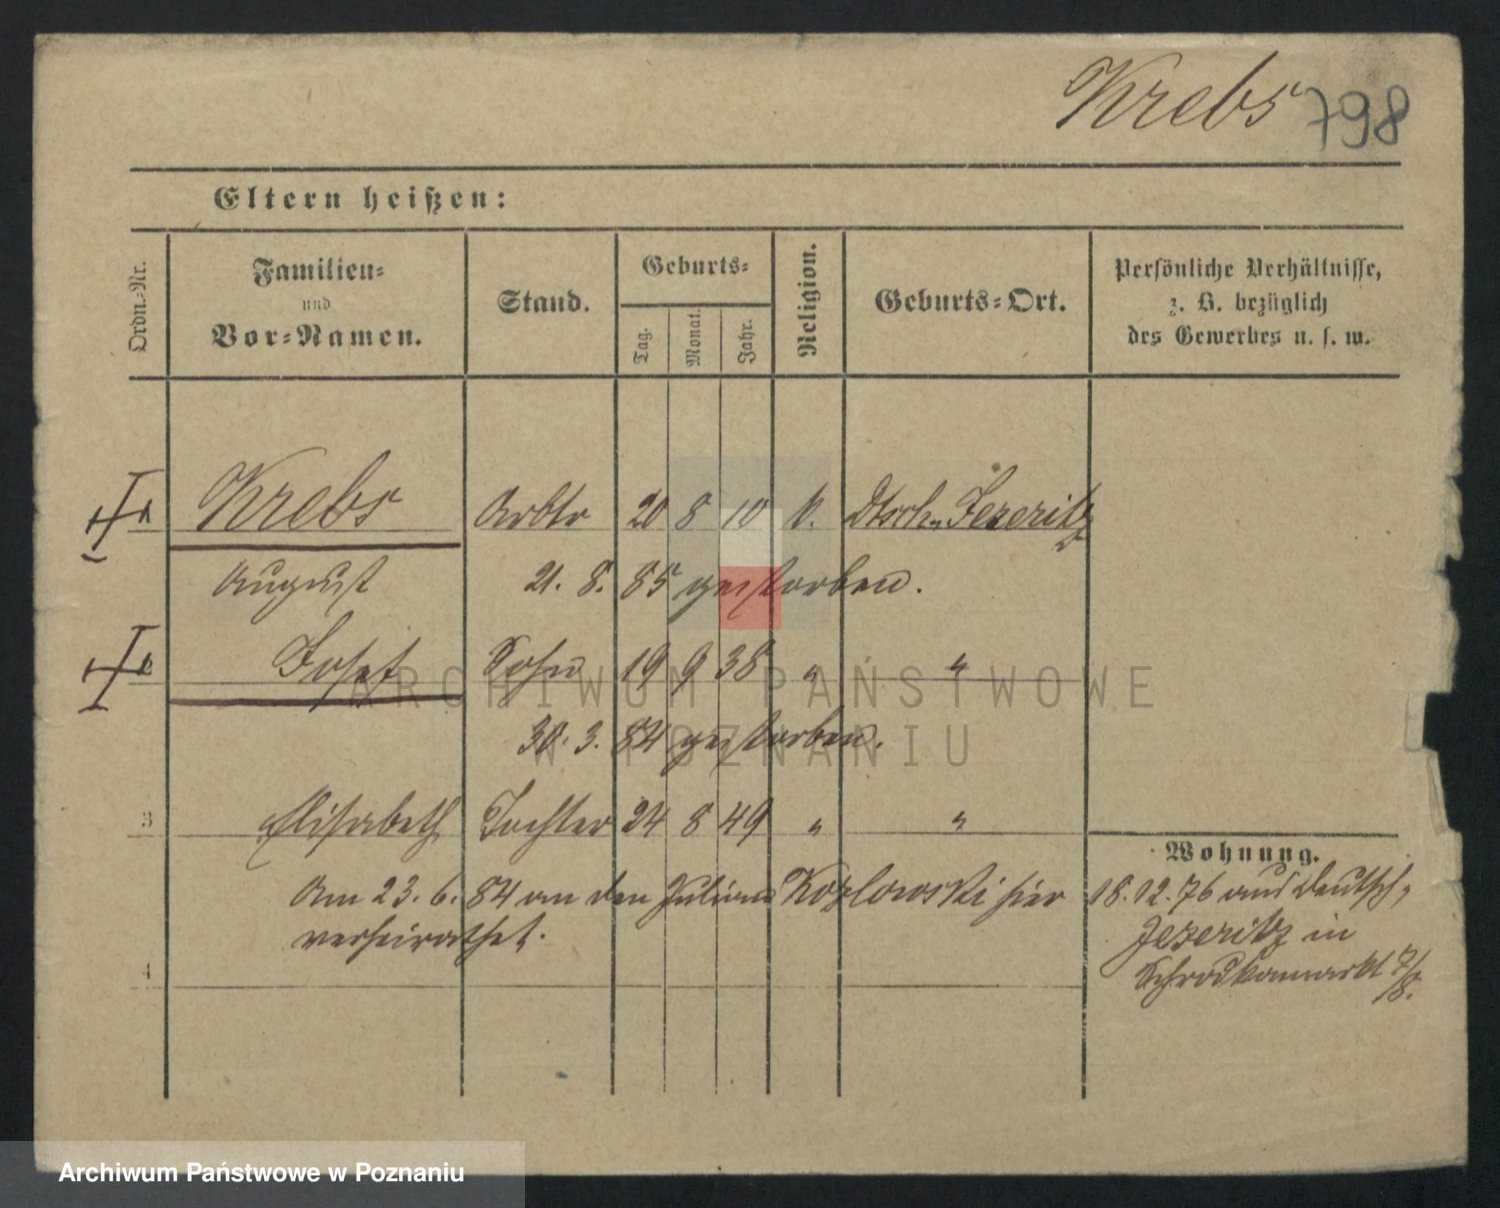 Krebs 798
Eltern heißen:
Ordn.-Nr.
Familien-
und
Vor-Namen.
Stand.
Geburts-
Tag.
Monat.
Jahr.
Religion.
Geburts-Ort.
Persönliche Verhältnisse,
z. B. bezüglich
des Gewerbes u. s. w.
Krebs Arbtr 20 8 10 k. Dtsch. Jezeritz
August 21. 8. 85 gestorben.
Josef Sohn 19 9 38 " "
30. 3. 84 gestorben.
3 Elisabeth Tochter 24 8 49 " "
Wohnung.
Am 23. 6. 84 an den Julian Kozlowski hier
verheirathet.
4
18. 12. 76 aus Deutsch-
Jezeritz in
Schrodkamarkt 7/8.
ARCHIWUM PAŃSTWOWE
W POZNANIU
Archiwum Państwowe w Poznaniu